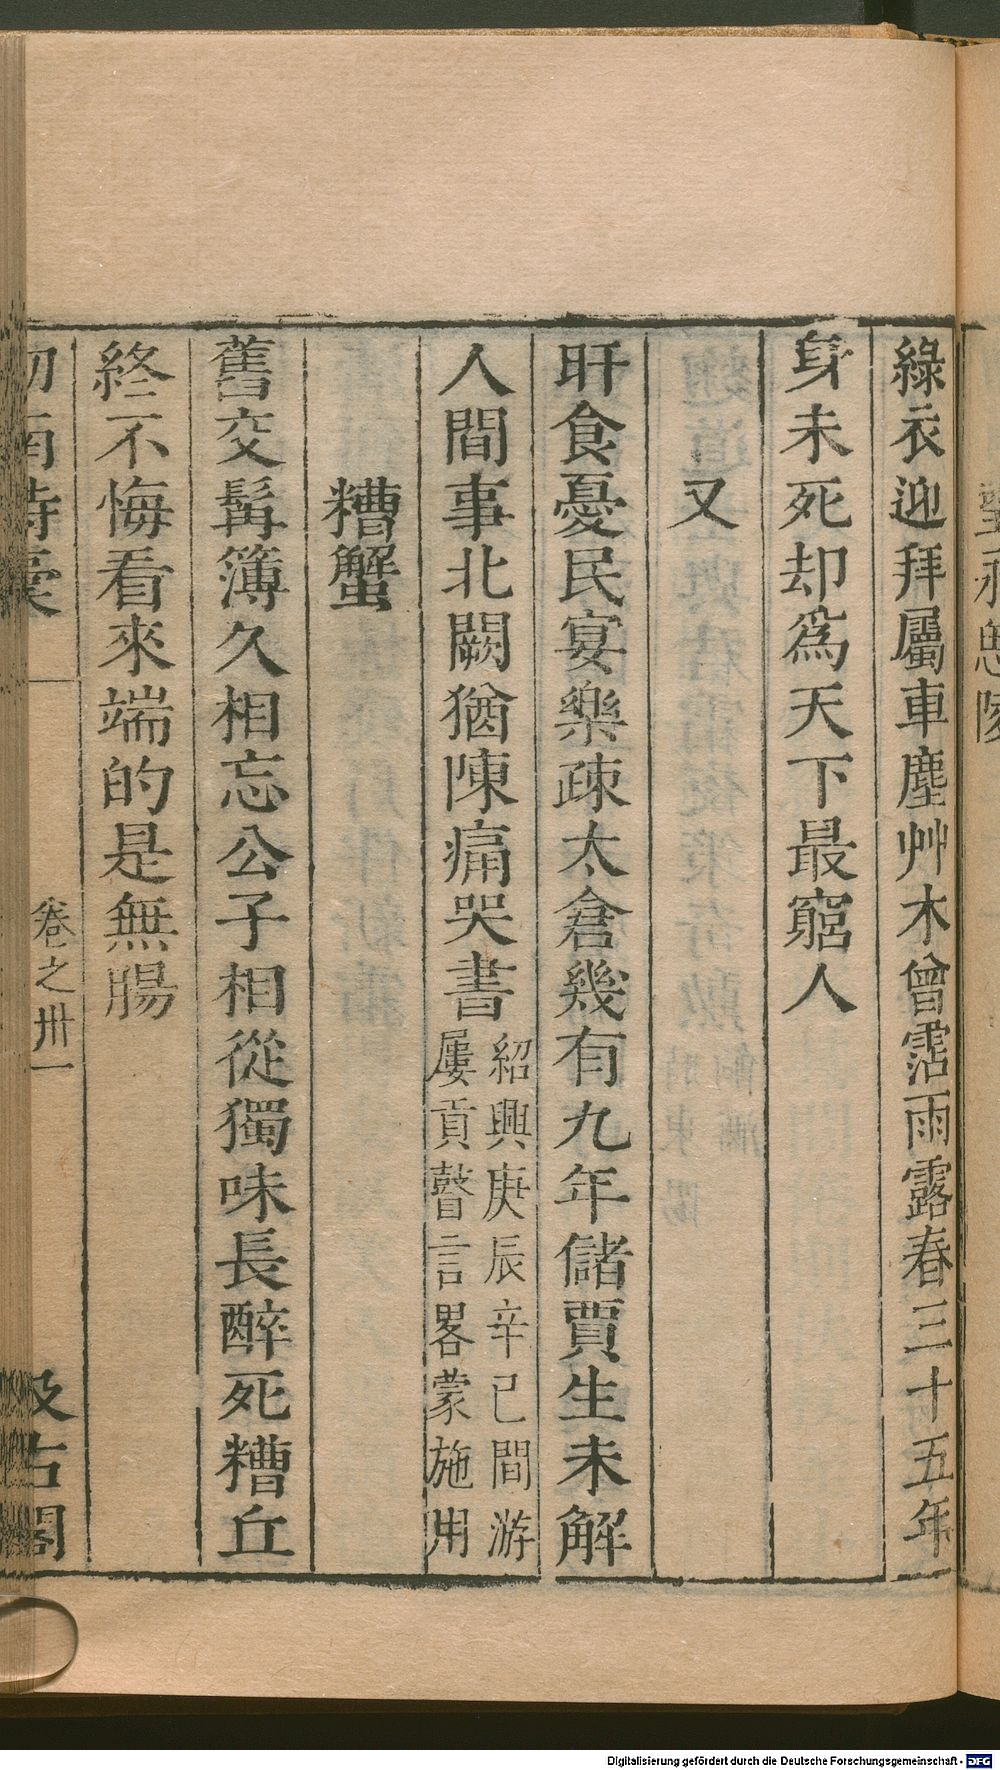 望永思陵
綠衣迎拜屬車塵艸木曾霑雨露春三十五年
身未死却爲天下最窮人
又
旰食憂民宴樂疎太倉幾有九年儲賈生未解
人間事北闕猶陳痛哭書
紹興庚辰辛巳間游
屢貢瞽言畧蒙施用
糟蟹
舊交髯簿久相忘公子相從獨味長醉死糟丘
終不悔看來端的是無腸
劎南詩稾 卷之卅一 汲古閣
Digitalisierung gefördert durch die Deutsche Forschungsgemeinschaft - DFG